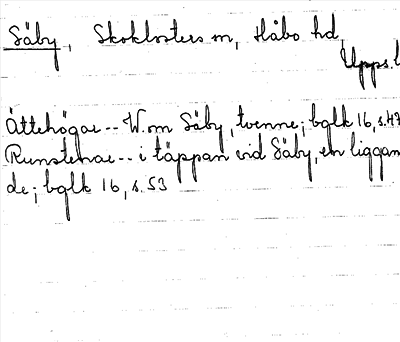 Säby, Skoklosters sn, Håbo hd,
Upps. l
Ättehögar -- W. om Säby, tvenne; bglk 16, s. 47
Runstenar -- i täppan vid Säby, en liggan
de; bglk 16, s. 53